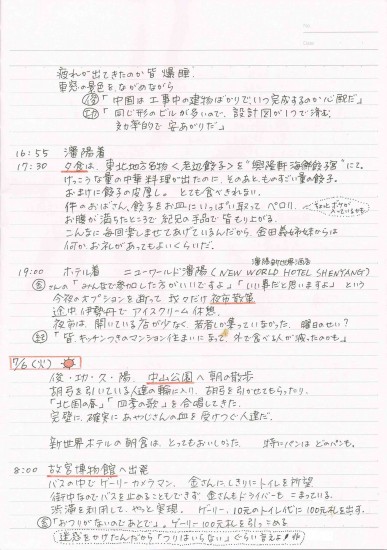 No.
Date
疲れが出てきたのか皆爆睡。
車窓の景色をながめながら
「中国は工事中の建物ばかりで、いつ完成するのか心配だ」
「同じ形のビルが多いので、設計図が1つで済む。
効率的で安あがりだ」
16:55 瀋陽着
17:30 夕食は、東北地方名物<老辺餃子>を“興隆軒海鮮餃子宮”にて。
けっこうな量の中華料理が出たのに、そのあと、ものすごい量の餃子。
おまけに餃子の皮厚し。とても食べきれない。
件のおばさん、餃子をお皿にいっぱい取ってペロリ。
お腹が満ちたところで紀兄の手品で皆もり上がる。
こんなに毎回楽しませてあげているんだから、金田義姉妹からは
何かお礼があってもよいくらいだ。
瀋陽新世界酒店
19:00 ホテル着 ニューワールド瀋陽(NEW WORLD HOTEL SHENYANG)
さんの「みんなで参加した方がいいですよ」「いい事だと思いますよ」という
今夜のオプションを断って我々だけ夜市散策
途中伊勢丹でアイスクリーム休憩。
夜市は、開いている店が少なく、若者しか集っていなかった。曜日のせい?
「皆、キッチンつきのマンション住まいになって、外で食べる人が減ったのかも」
7/6(火)
俊・功・久・陽、中山公園へ朝の散歩
胡弓を引いている人達の輪に入り、胡弓を引かせてもらったり、
「北国の春」「四季の歌」を合唱してきた。
完璧に、確実にあやじさんの血を受けつぐ人達だ。
新世界ホテルの朝食は、とってもおいしかった。特にパンはどのパンも。
8:00 故宮博物館へ出発
バスの中でゲーリーカメラマン、金さんに、しきりにトイレを所望
街中なのでバスを止めることもできず、金さんもドライバーもこまっている。
渋滞を利用して、やっと実現。ゲーリー、10元のトイレ代に100元札を出す。
「おつりがないのであとで」。ゲーリー100元札を引っこめる
迷惑をかけたんだから「つりはいらない」ぐらい言えよ!